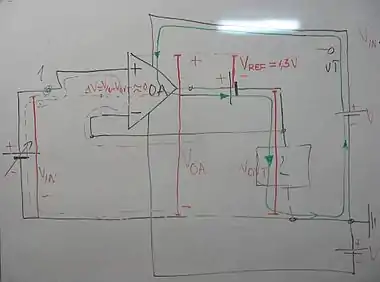 V_IN
1
+
+
V_REF = 1,3V
-
+
-0
VT
ΔV=V+-V-≈0
OA
-
+
V
V_IN
V_OA
V_OUT
-
+
V